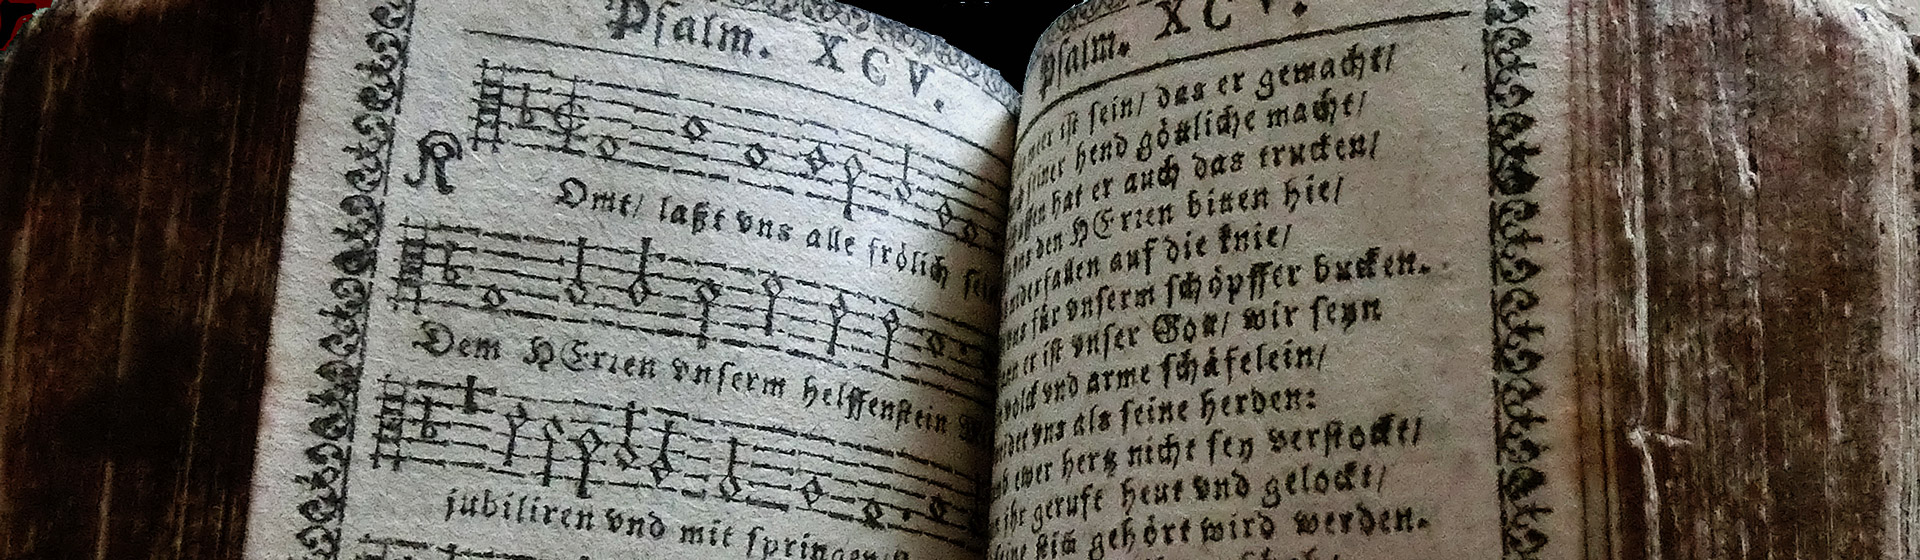 Psalm. XCV.
KOmt/ laßt vns alle frölich
Dem HErren vnserm helffenstein
jubiliren vnd mit springen
Psalm. XCV.
ist sein/ das er gemacht/
seiner hend göttliche macht/
hat er auch das trucken/
den HErren bitten hie/
niderfallen auf die knie/
für vnserm schöpffer bucken.
er ist vnser Gott/ wir seyn
volck vnd arme schäfelein/
vns als seine herden:
ewer hertz nicht sey verstockt/
ihr geruft heut vnd gelockt/
seine stim̄ gehört wird werden.